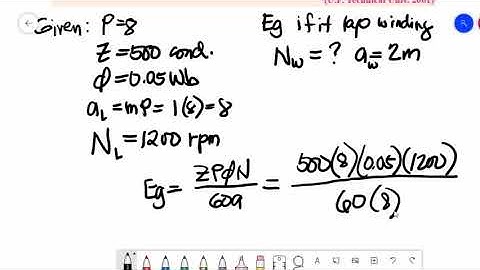 (U.P. Technical Univ. 2001)
Given: P=8
Z=500 cond.
φ=0.05 Wb
a_L=mP=1(8)=8
N_L=1200 rpm
Eg if it lap winding
N_w=? a_w=2m
Eg= ZPφN/60a = 500(8)(0.05)(1200)/60(8)